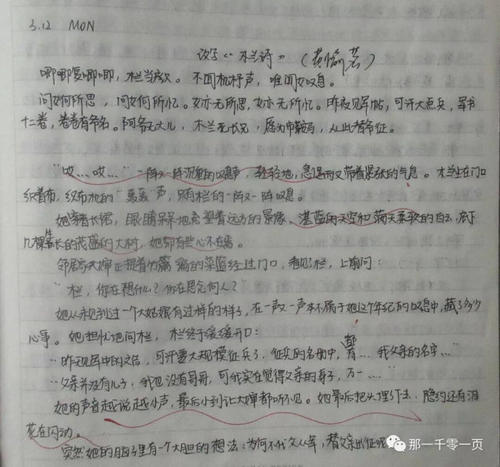 3.12 MON
改写“木兰诗” (黄愉芸)
唧唧复唧唧，木兰当户。不闻机杼声，唯闻女叹息。
问女何所思，问女何所忆。女亦无所思，女亦无所忆。昨夜见军帖，可汗大点兵，军书
十二卷，卷卷有爷名。阿爷无大儿，木兰无长兄，愿为市鞍马，从此替爷征。
“哎…哎…”一阵又一阵沉重的叹息声，轻轻地，急促而又带着紧张的气息。木兰坐在门口
织着布，织布机的“轰轰”声，只有木兰的一阵又一阵叹息。
她穿着长裙，眼睛呆呆地看望着远方的景象。湛蓝的天空和满天柔软的白云，旁
几棵生长的茂盛的大树，她却有些心不在焉。
邻居大婶正提着满的菜篮经过门口，看见木兰，上前问：
“木兰，你在想什么？你在思念何人？”
她从未见到过一个大姑娘有过这样的样子，在一声又一声本不属于她这个年纪的叹息中，藏了多少
心事。她担忧地问木兰，木兰终于缓缓开口：
“昨日军中的文告，可汗要大规模征兵了，征兵的名册中，有… 我父亲的名字…”
“父亲并没有儿子，我也没有哥哥，可我实在觉得父亲的身子，万一…”
她的声音越说越小声，最后小到让大婶都听不见。她最后把头埋了下去，隐约还有泪
花在闪动。
突然她的脑子里有一个大胆的想法：为何不代父从军，替父亲出征呢
那一千零一页